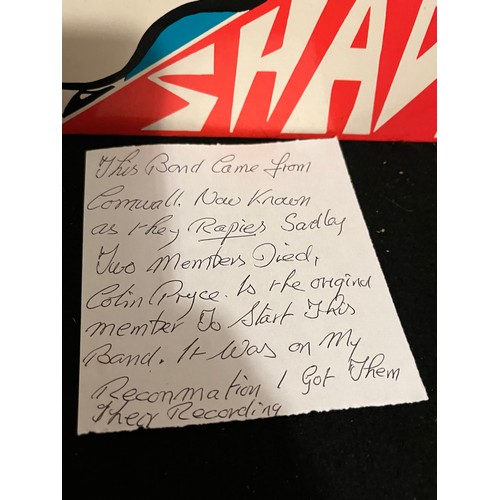 SHAD
This Band Came from
Cornwall. Now Known
as they Rapies Sadley
Two Members Died,
Colin Pryce. Is the original
member To Start This
Band. It Was on My
Reconmation I Got Them
Their Recording